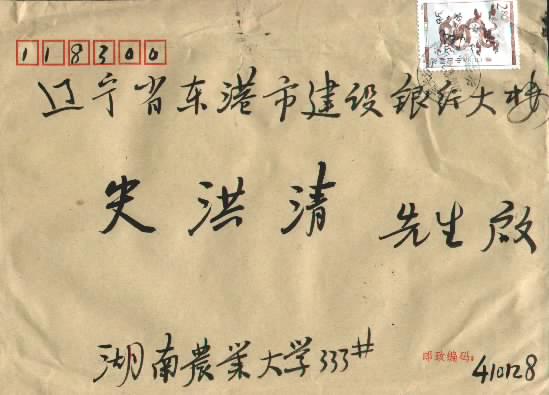 118300
辽宁省东港市建设银行大楼
史洪清 先生启
湖南農業大学333#
邮政编码: 410128